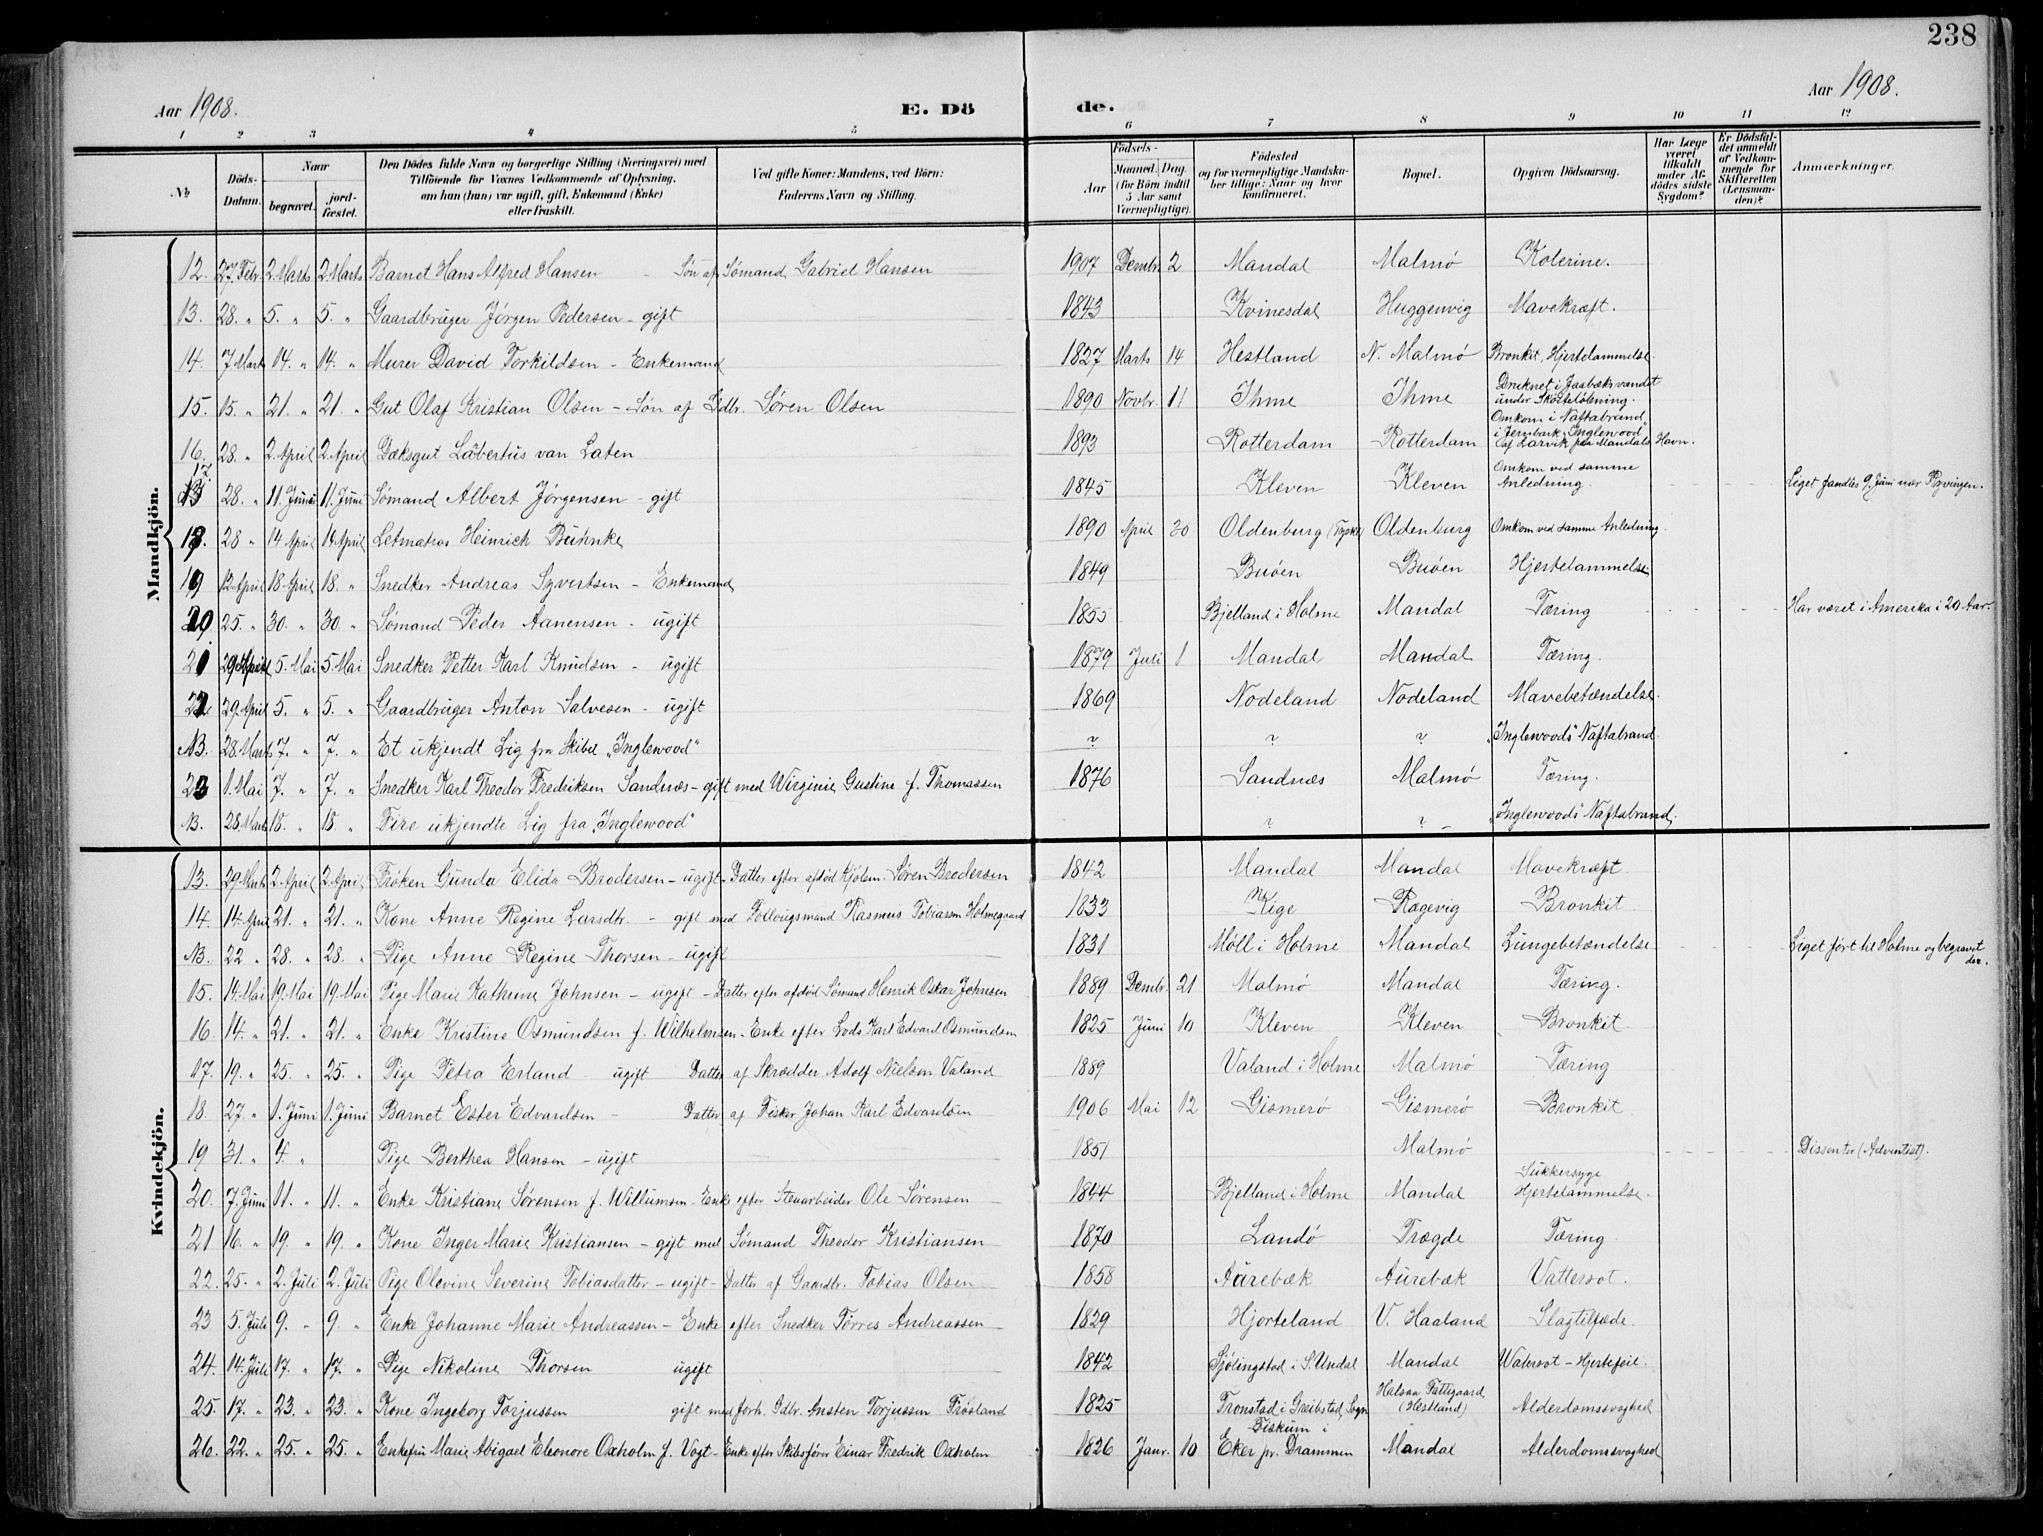 238
Aar 1908.
E. Dö
de.
Aar 1908.
1 2 3 4 5 6 7 8 9 10 11 12
№ Döds-Datum. Naar begravet. jord-fæstet. Den Dödes fulde Navn og borgerlige Stilling (Næringsvei) med Tilföiende for Voxnes Vedkommende af Oplysning, om han (hun) var ugift, gift, Enkemand (Enke) eller fraskilt. Ved gifte Koner: Mandens, ved Börn: Faderens Navn og Stilling. Födsels- Aar Maaned. Dag. (for Börn indtil 5 Aar samt Værnepligtige). Födested og for værnepligtige Mandskaber tillige: Naar og hvor konfirmeret. Bopæl. Opgiven Dödsaarsag. Har Læge været tilkaldt under Afdödes sidste Sygdom? Er Dödsfaldet anmeldt af Vedkommende for Skifteretten (Lensmanden)? Anmærkninger.
Mandkjön.
12. 27. Febr. 2. Marts 2. Marts Barnet Hans Alfred Hansen - Søn af Sømand Gabriel Hansen 1907 Dembr. 2 Mandal Malmø Kolerine.
13. 28. " 5. " 5. " Gaardbruger Jørgen Pedersen - gift 1843 Kvinesdal Huggenvig Mavekræft.
14. 7 Mart 14. " 14. " Murer David Torkildsen - Enkemand 1827 Marts 14 Hestland N. Malmø Bronkit, Hjertelammelse.
15. 15. " 21. " 21. " Gut Olaf Kristian Olsen - Søn af Gdbr. Søren Olsen 1890 Novbr. 11 Ihme Ihme Druknet i Jaabæksvandet under Skøiteløbning.
16. 28. " 2. April 2. April Dæksgut Labertus van Laten 1893 Rotterdam Rotterdam Omkom i Naftabrand i Jernbark "Inglewood" af Larvik paa Mandals Havn.
17 28. " 11. Juni 11. Juni Sømand Albert Jørgensen - gift 1845 Kleven Kleven Omkom ved samme Anledning. Liget fandtes 9. Juni nær Ryvingen.
18. 28 " 14 April 14 April Letmatros Heinrich Buhnke 1890 April 30 Oldenburg (Tyskl) Oldenburg Omkom ved samme Anledning.
19 12. April 18. April 18. " Snedker Andreas Syvertsen - Enkemand 1849 Buøen Buøen Hjertelammelse
20 25. " 30. " 30 " Sømand Peder Aanensen - ugift 1855 Bjelland i Holme Mandal Tæring Har været i Amerika i 20 Aar.
21 29 April 5. Mai 5 Mai Snedker Petter Karl Knudsen - ugift 1879 Juli 1 Mandal Mandal Tæring.
22 29. April 5. " 5. " Gaardbruger Anton Salvesen - ugift 1869 Nodeland Nodeland Mavebetændelse.
NB. 28. Marts 7. " 7. " Et ukjendt Lig fra Skibet "Inglewood" ? ? ? "Inglewoods" Naftabrand.
23 1. Mai 7. " 7. " Snedker Karl Theodor Fredriksen Sandnæs - gift med Wirginie Gustine f. Thomassen 1876 Sandnæs Malmø Tæring.
NB. 28. Marts 18. " 18. " Fire ukjendte Lig fra "Inglewood" ? ? "Inglewoods" Naftabrand.
Kvindekjön.
13. 29. Marts 2. April 2. April Frøken Gunda Elida Brodersen - ugift - Datter efter afdød Kjøbm. Søren Brodersen 1842 Mandal Mandal Mavekræft.
14. 14. April 21. " 21. " Kone Anne Regine Larsdtr. - gift med Follougsmand Rasmus Tobiassen Holmegaard 1833 Kige Ragevig Bronkit
NB. 22 " 28. " 28. " Pige Anne Regine Thorsen - ugift 1831 Møll i Holme Mandal Lungebetændelse Liget ført til Holme og begravet der.
15. 14. Mai 19. Mai 19. Mai Pige Marie Kathrine Johnsen - ugift - Datter efter afdød Sømand Henrik Oskar Johnsen 1889 Dembr. 21 Malmø Mandal Tæring.
16. 14. " 21. " 21. " Enke Kristine Osmundsen f. Wilhelmsen - Enke efter Lods Karl Edvard Osmundsen 1825 Juni 10 Kleven Kleven Bronkit
17. 19. " 25. " 25. " Pige Petra Erland - ugift Datter af Skrædder Adolf Nielsen Valand 1889 Valand i Holme Malmø Tæring
18. 27. " 1. Juni 1. Juni Barnet Ester Edvardsen - Datter af Fisker Johan Karl Edvardsen 1906 Mai 12 Gismerø Gismerø Bronkit
19 31. " 4. " Pige Berthea Hansen - ugift 1851 Malmø Dissenter (Adventist).
20. 7. Juni 11. " 11. " Enke Kristiane Sørensen f. Willumsen - Enke efter Stenarbeider Ole Sørensen 1844 Bjelland i Holme Mandal Sukkersyge Hjertelammelse.
21 16. " 19. " 19. " Kone Inger Marie Kristiansen - gift med Sømand Theodor Kristiansen 1870 Landø Trægde Tæring
22. 25. " 2. Juli 2. Juli Pige Olevine Severine Tobiasdatter - ugift - Datter af Gaardbr. Tobias Olsen 1858 Aurebæk Aurebæk Vattersot.
23 5. Juli 9. " 9. " Enke Johanne Marie Andreassen - Enke efter Snedker Torres Andreassen 1829 Hjorteland V. Haaland Slagtilfæde.
24. 14. Juli 17. " 17. " Pige Nikoline Thorsen ugift 1842 Sjølingstad i S. Undal Mandal Watersot - Hjertefeil.
25. 17. " 23. " 23. " Kone Ingeborg Torjussen gift med forh. Gdbr. Ansten Torjussen Frøsland 1825 Tronstad i Greibstad Sogn Halsaa Fattigaard (Hestland) Alderdomssvaghed
26. 22. " 25. " 25. " Enkefru Marie Abigael Eleonore Oxholm f. Vogt - Enke efter Skibsfører Einar Fredrik Oxholm 1826 Janr. 10 Fiskum i Eker pr. Drammen Mandal Alderdomssvaghed